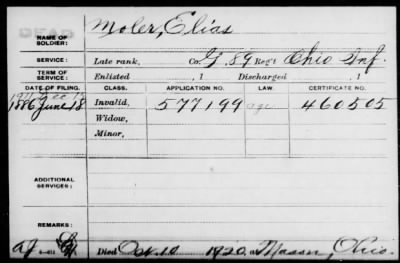 DEAD
NAME OF SOLDIER: Moler, Elias
SERVICE: Late rank, Co. G, 89 Reg't Ohio Inf.
TERM OF SERVICE: Enlisted , 1 Discharged , 1
DATE OF FILING. CLASS. APPLICATION NO. LAW. CERTIFICATE NO.
1886 June 18 Invalid, 577199 460505
Widow,
Minor,
ADDITIONAL SERVICES:
REMARKS:
Died Oct. 10 1920, at Mason, Ohio.